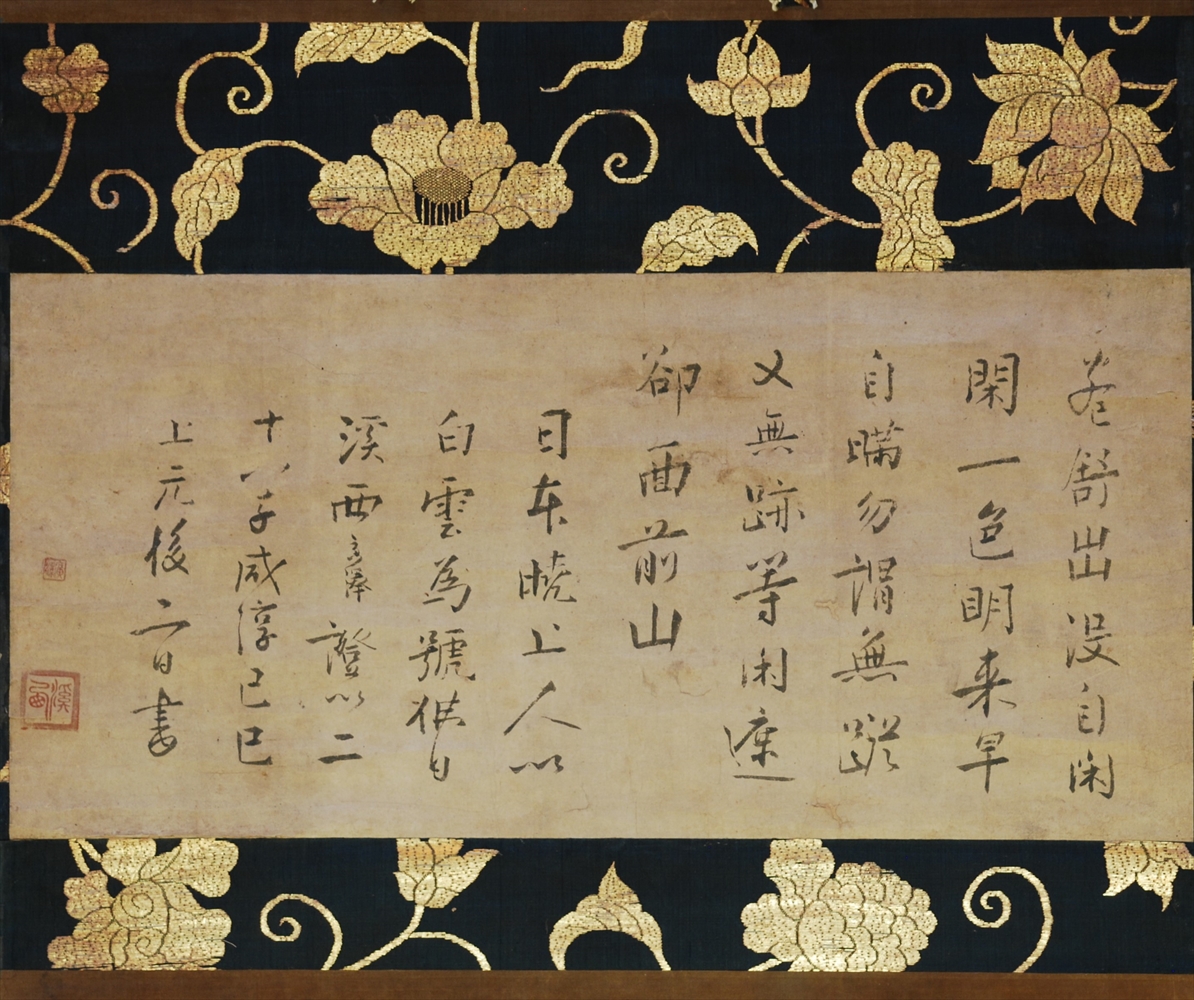 卷舒出没自閑
閑一色明来早
自瞞勿謂無蹤
又無跡等閑遮
卻面前山
日本暁上人以
白雲為號佛日
溪西廣澤證以二
十八字咸淳己巳
上元後二日書
溪西